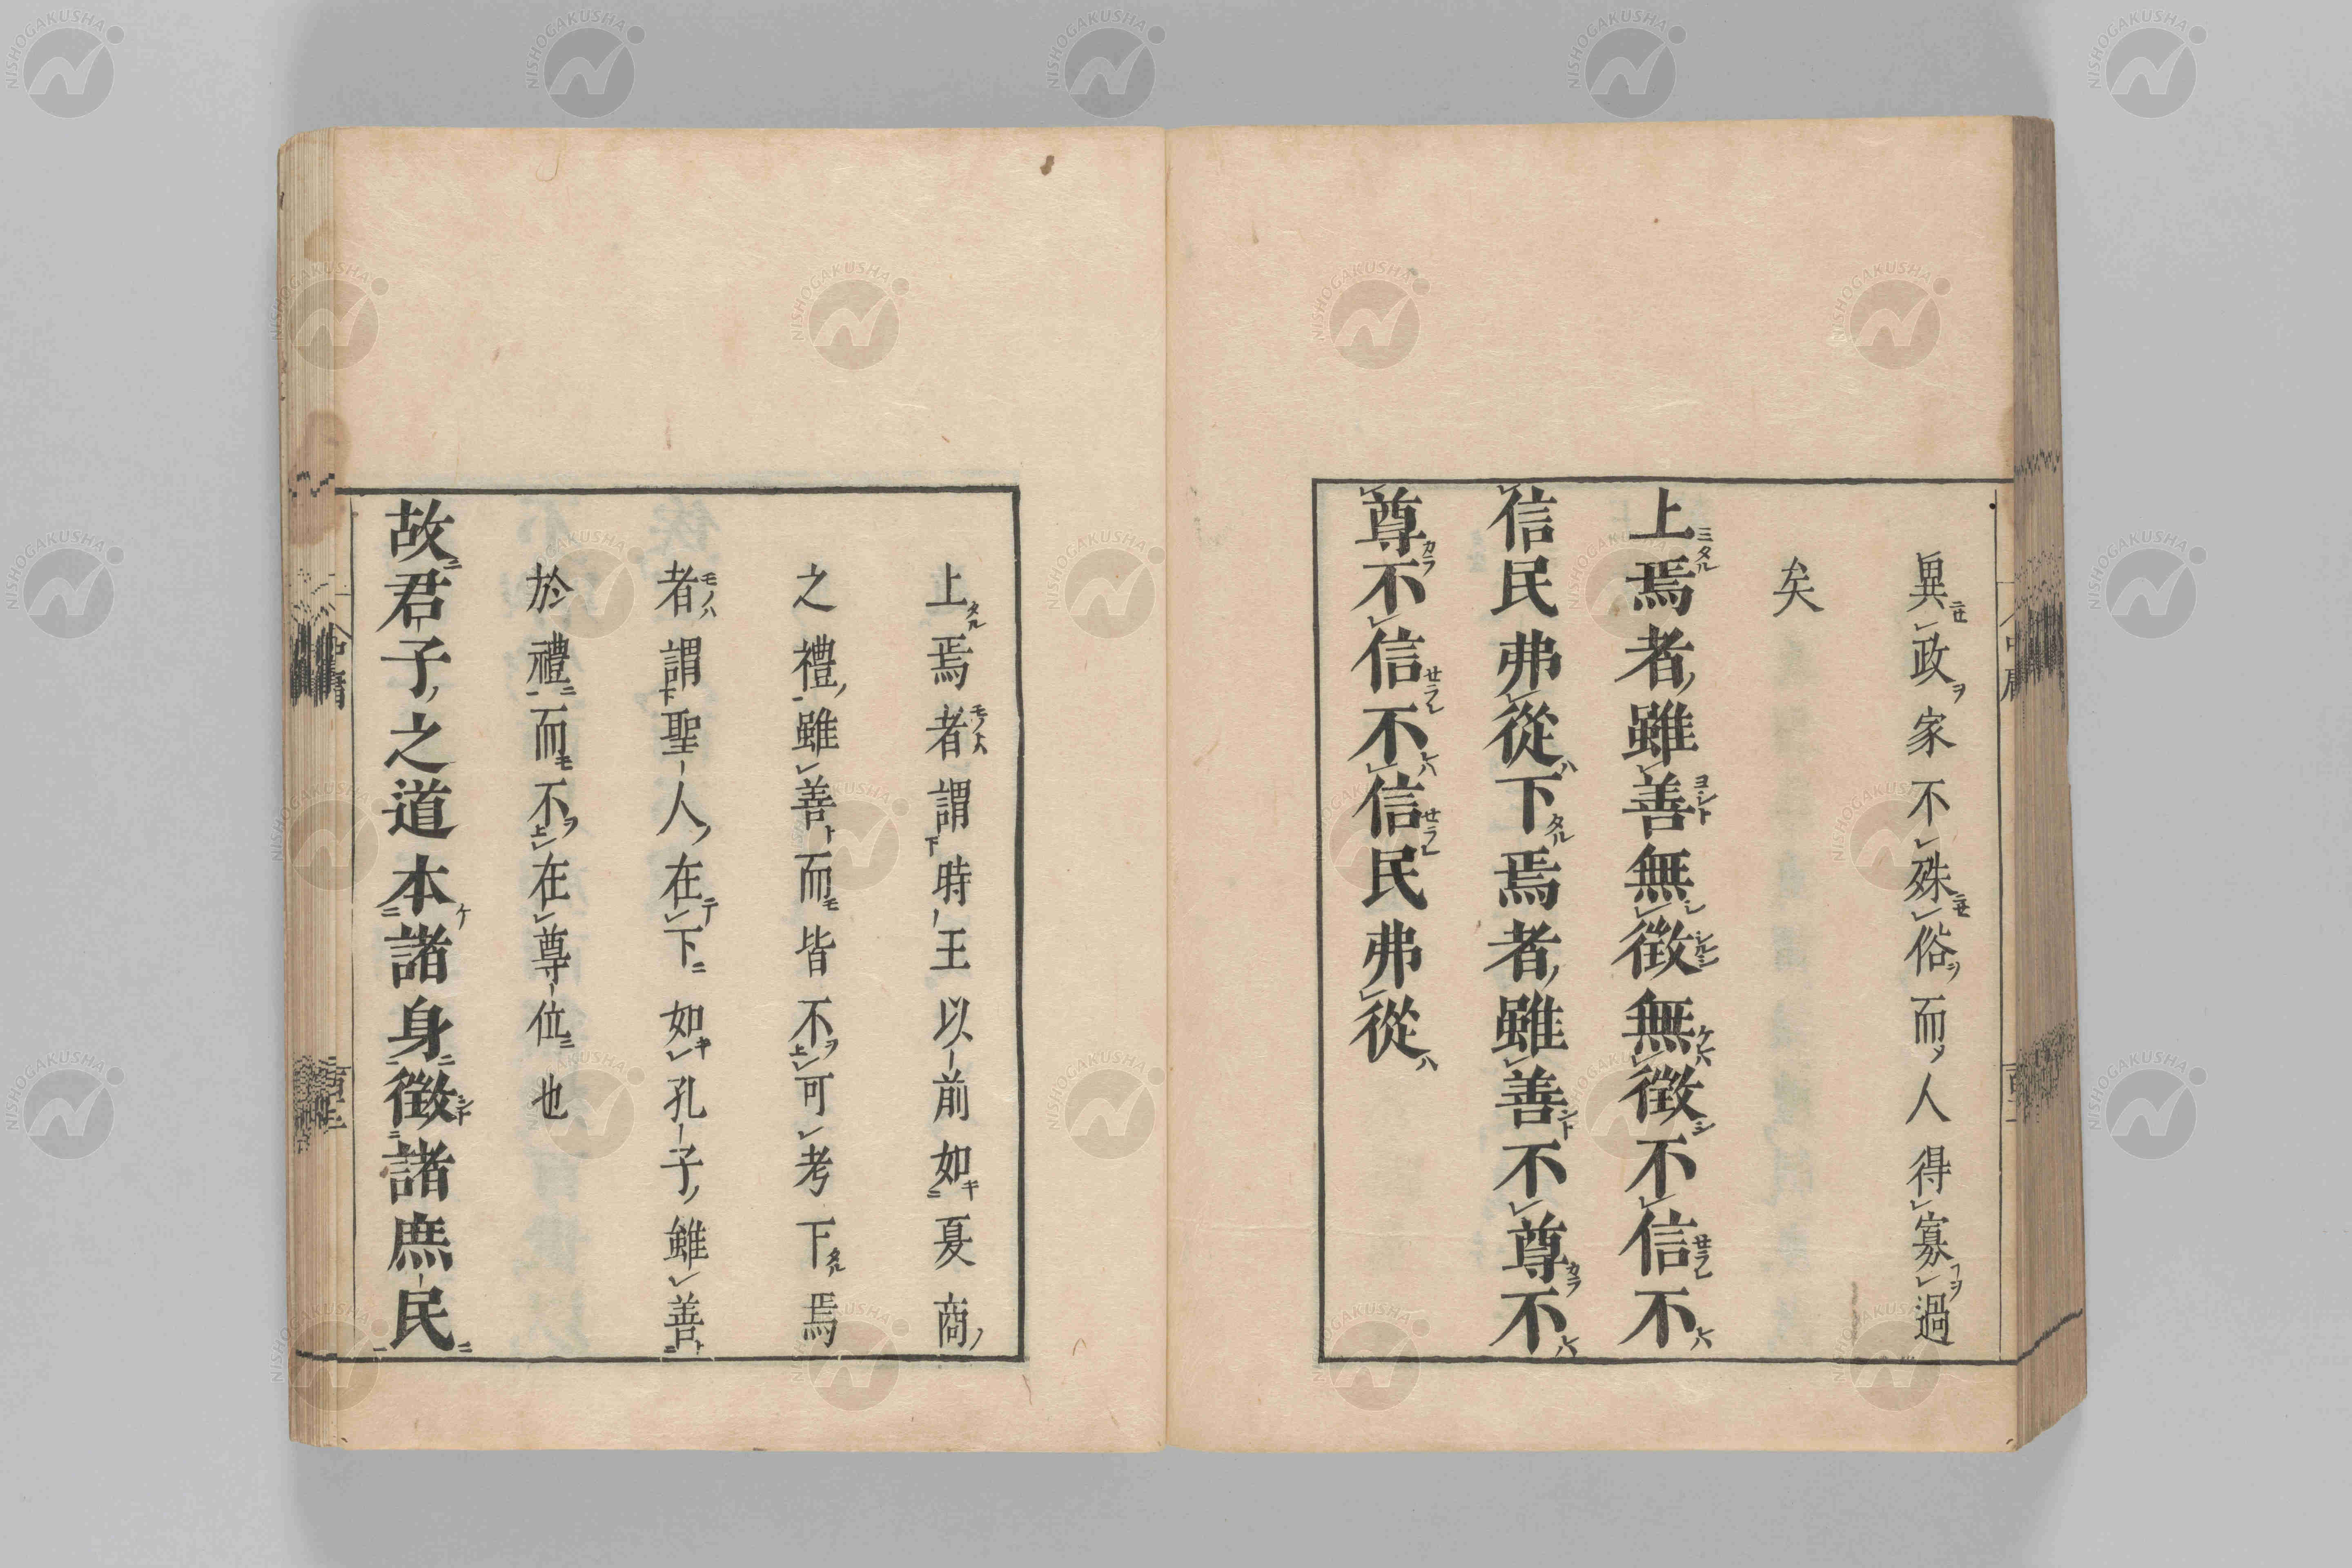 異政家不殊俗而人得寡過
矣
上焉者雖善無徴無徴不信不
信民弗從下焉者雖善不尊不
尊不信不信民弗從
上焉者謂時王以前如夏商
之禮雖善而皆不可考下焉
者謂聖人在下如孔子雖善
於禮而不在尊位也
故君子之道本諸身徴諸庶民
NISHOGAKUSHA